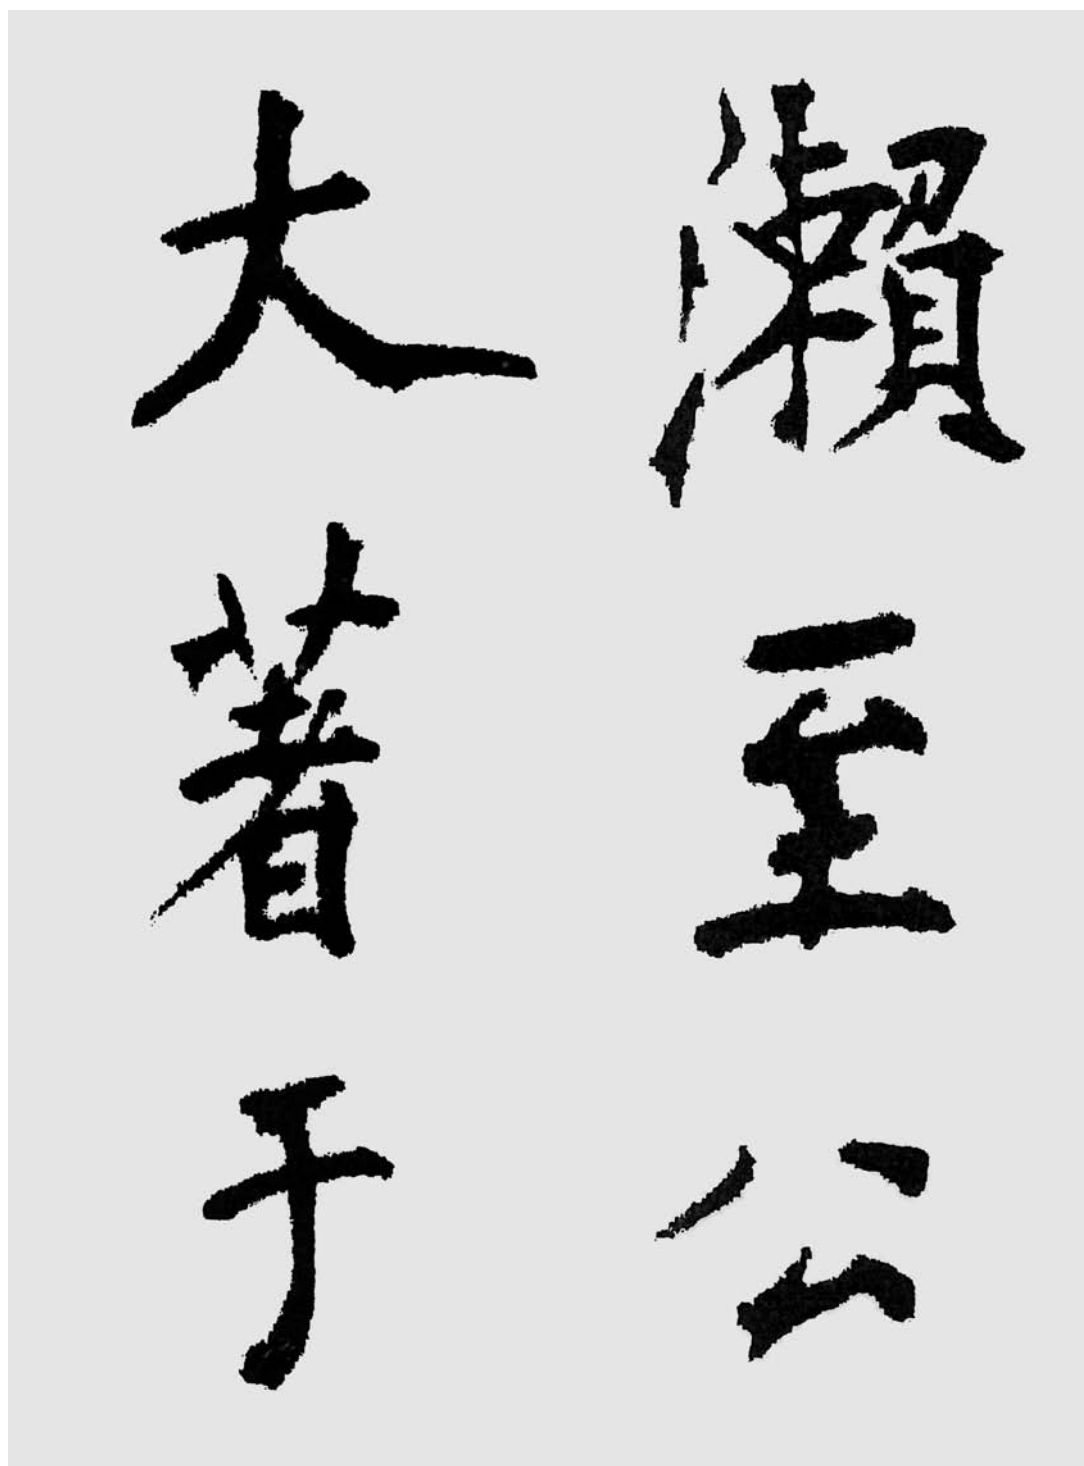 瀨至公
大著于